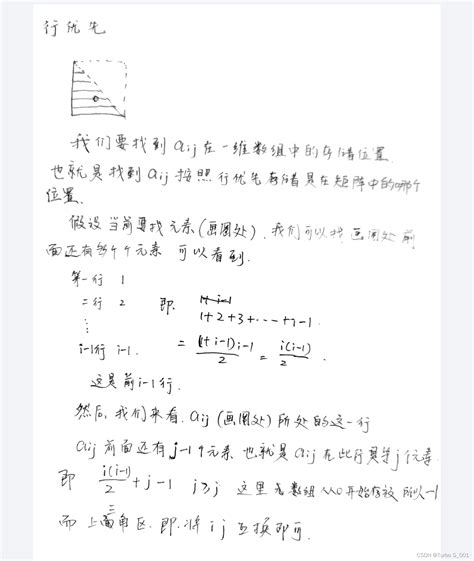 行优先
我们要找到 aij 在一维数组中的存储位置.
也就是找到 aij 按照行优先存储是在矩阵中的哪个
位置.
假设当前要找元素(画圈处), 我们可以找画圈处前
面还有多少个元素 可以看到.
第一行 1
二行 2 即.
⋮ 1+2+3+⋯+i-1.
i-1行 i-1. = (1+i-1)i-1/2 = i(i-1)/2
这是前i-1行.
然后, 我们来看. aij (画圈处) 所处的这一行
aij 前面还有 j-1个元素. 也就是 aij 在此行是第j个元素.
即 i(i-1)/2 + j-1 i≥j 这里 数组从0开始存放 所以-1
而上三角区. 即. 将 i j 互换即可.
CSDN @Turbo S_001